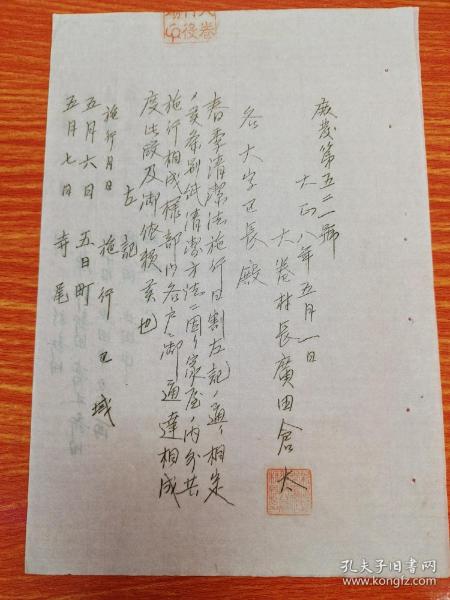 大巻役場印
庶發第五二一號
大正八年五月一日
大巻村長廣田倉太
各大字区長殿
春季清潔法施行日割左記ノ通リ相定
候条別紙清潔方法ニ因リ家屋ノ内外共
施行相成様部内各戸ニ御通達相成
度此段及御依頼候也
左記
施行月日 施行区域
五月六日 五日町
五月七日 寺尾
孔夫子旧书网
www.kongfz.com